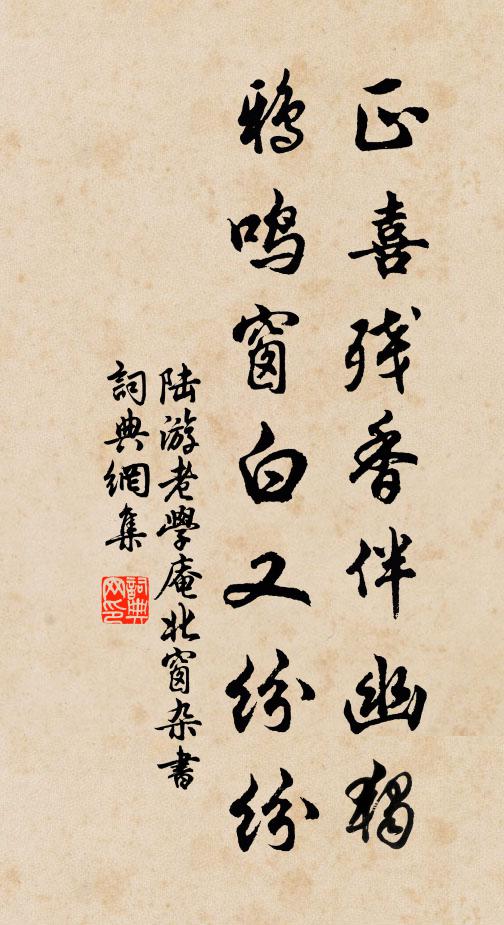 正喜残香伴幽独
鸦鸣窗白又纷纷
陆游老學庵北窗杂書
詞典網集
詞典
网印